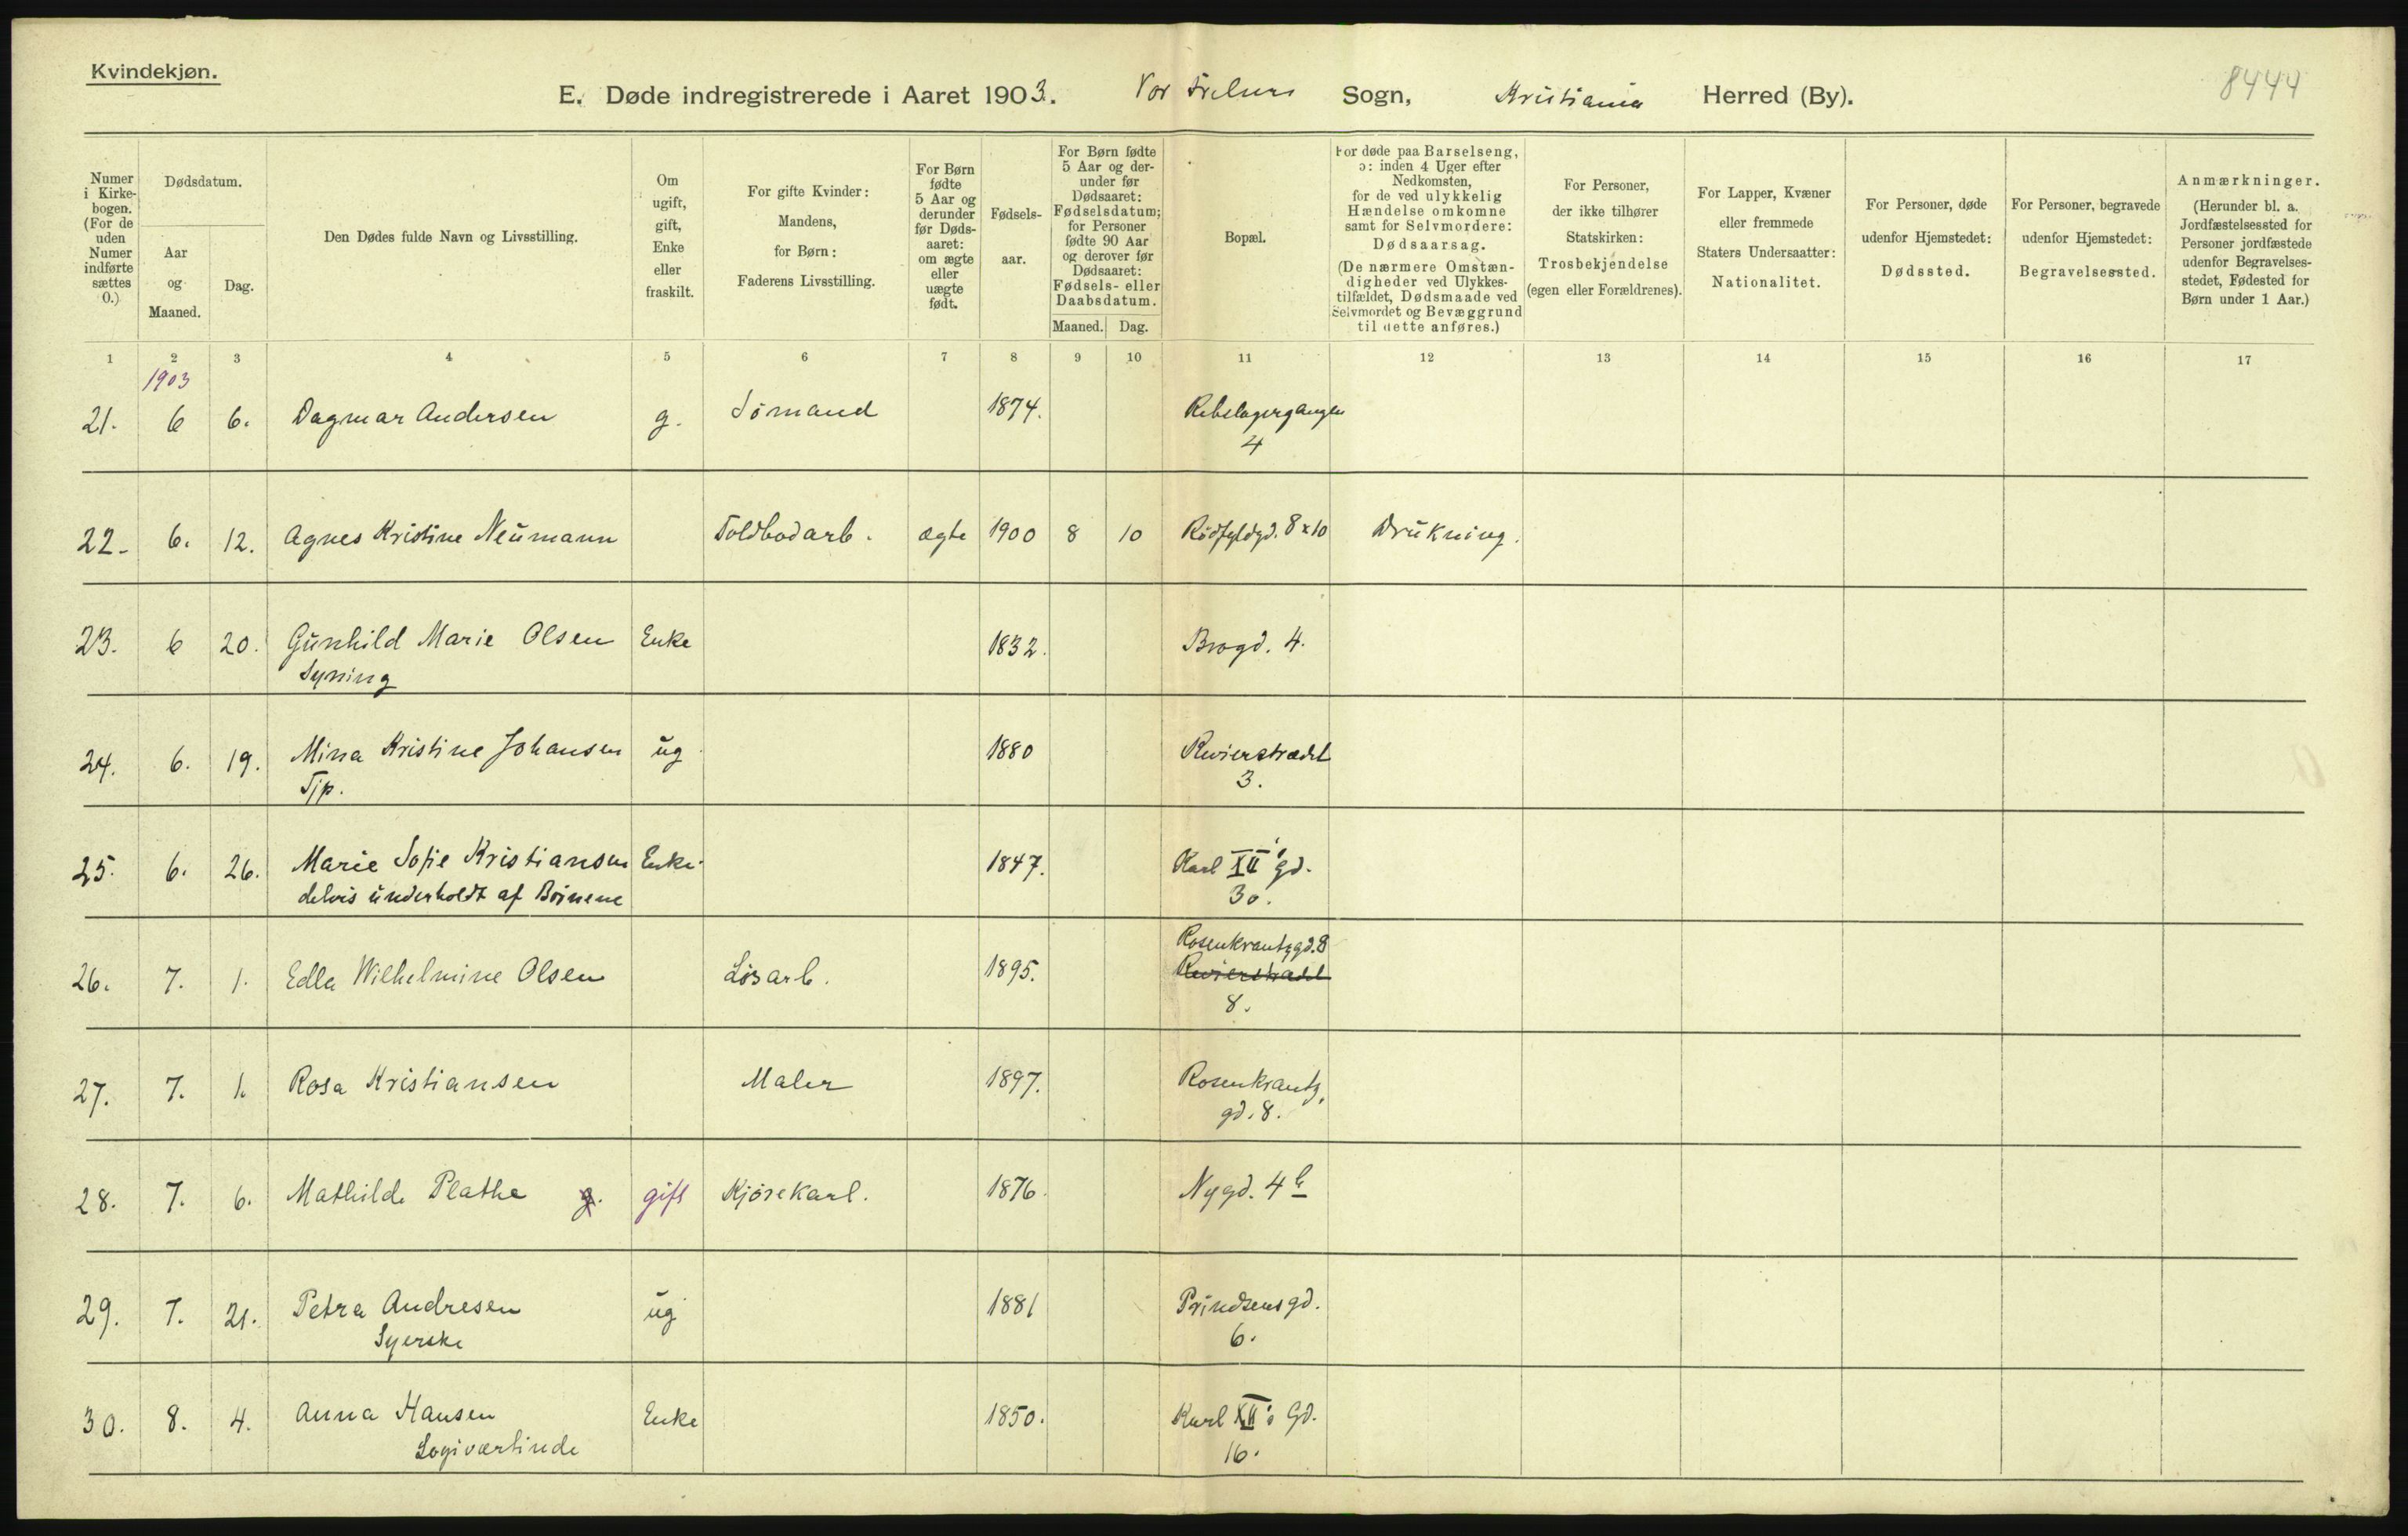 Kvindekjøn.
E. Døde indregistrerede i Aaret 1903. Vor Frelsers Sogn, Kristiania Herred (By). 8444
Numer i Kirkebogen. (For de uden Numer indførte sættes 0.)
Dødsdatum.
Aar og Maaned.
Dag.
Den Dødes fulde Navn og Livsstilling.
Om ugift, gift, Enke eller fraskilt.
For gifte Kvinder: Mandens, for Børn: Faderens Livsstilling.
For Børn fødte 5 Aar og derunder før Dødsaaret: om ægte eller uægte født.
Fødselsaar.
For Børn fødte 5 Aar og derunder før Dødsaaret: Fødselsdatum; for Personer fødte 90 Aar og derover før Dødsaaret: Fødsels- eller Daabsdatum.
Maaned. Dag.
Bopæl.
For døde paa Barselseng, ɔ: inden 4 Uger efter Nedkomsten, for de ved ulykkelig Hændelse omkomne samt for Selvmordere: Dødsaarsag. (De nærmere Omstændigheder ved Ulykkestilfældet, Dødsmaade ved Selvmordet og Bevæggrund til dette anføres.)
For Personer, der ikke tilhører Statskirken: Trosbekjendelse (egen eller Forældrenes).
For Lapper, Kvæner eller fremmede Staters Undersaatter: Nationalitet.
For Personer, døde udenfor Hjemstedet: Dødssted.
For Personer, begravede udenfor Hjemstedet: Begravelsessted.
Anmærkninger. (Herunder bl. a. Jordfæstelsessted for Personer jordfæstede udenfor Begravelsesstedet, Fødested for Børn under 1 Aar.)
1 2 3 4 5 6 7 8 9 10 11 12 13 14 15 16 17
1903
21. 6 6. Dagmar Andersen g. Sömand 1874. Rebslagergangen
4
22. 6. 12. Agnes Kristine Neumann Toldbodarb. ægte 1900 8 10 Rödfyldgd. 8 x 10 Drukning.
23. 6 20. Gunhild Marie Olsen Enke 1832. Brogd. 4.
Syning
24. 6. 19. Mina Kristine Johansen ug 1880 Revierstrædet
Tjp. 3.
25. 6. 26. Marie Sofie Kristiansen Enke 1847. Karl XII's gd.
delvis underholdt af Börnene 30.
Rosenkrantzgd. 8
26. 7. 1. Edla Wilhelmine Olsen Lösarb. 1895. Revierstrædet
8.
27. 7. 1. Rosa Kristiansen Maler 1897. Rosenkrantz,
gd. 8.
28. 7. 6. Mathilde Plathe g. gift Kjörekarl. 1876. Nygd. 4 b
29. 7. 21. Petra Andresen ug 1881 Prindsensgd.
Syerske 6.
30. 8. 4. Anna Hansen Enke 1850. Karl XII's Gd.
Logiværtinde 16.